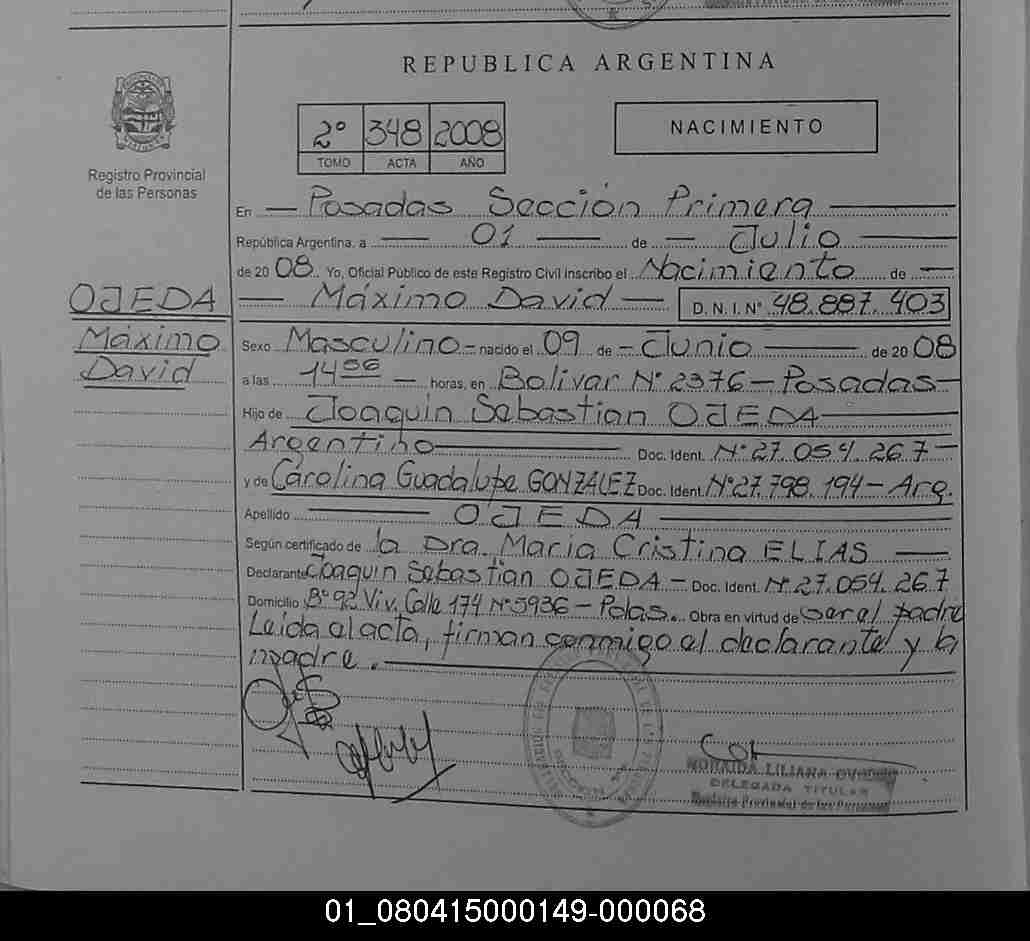 REPUBLICA ARGENTINA
Registro Provincial
de las Personas
2° 348 2008
TOMO ACTA AÑO
NACIMIENTO
En — Posadas Sección Primera —
República Argentina, a — 01 — de — Julio
de 2008. Yo, Oficial Público de este Registro Civil inscribo el Nacimiento de —
OJEDA
Máximo
David
— Máximo David — D.N.I. N° 48.887.403
Sexo Masculino - nacido el 09 de - Junio — de 2008
a las 14 56 — horas, en Bolivar N° 2376 - Posadas -
Hijo de Joaquin Sebastian OJEDA —
Argentino — Doc. Ident. N° 27.054.267 -
y de Carolina Guadalupe GONZALEZ Doc. Ident. N° 27.798.194 - Arg.
Apellido — OJEDA —
Según certificado de la Dra. Maria Cristina ELIAS —
Declarante Joaquin Sebastian OJEDA - Doc. Ident. N° 27.054.267
Domicilio B° 92 Viv. Calle 174 N° 5936 - Pdas. Obra en virtud de ser el padre
Leida el acta, firman conmigo el declarante y la
madre. —
LILIANA
DELEGADA TITULAR
Registro Provincial de las Personas
01_080415000149-000068